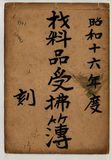 昭和十六年度
材料品受拂簿
刻